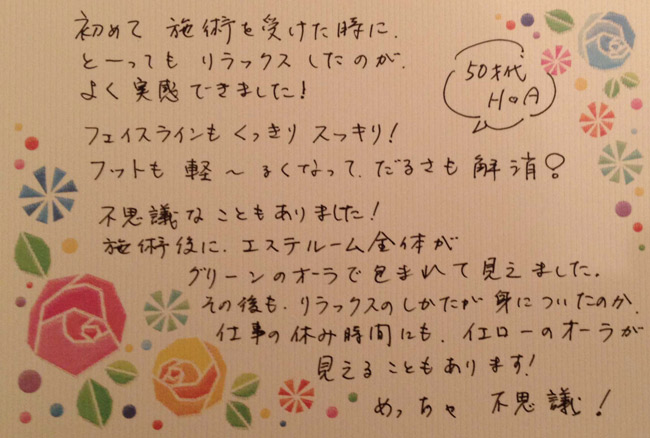 初めて 施術を受けた時に、
と〜っても リラックス したのが、
よく 実感 できました!
50才代
H.A
フェイスラインも くっきり スッキリ!
フットも 軽〜るくなって、だるさも 解消!
不思議な こともありました!
施術後に、エステルーム全体が
グリーンのオーラで包まれて見えました。
その後も、リラックスのしかたが 身についたのか、
仕事の休み時間にも、イエローのオーラが
見えることもあります!
めっちゃ 不思議!